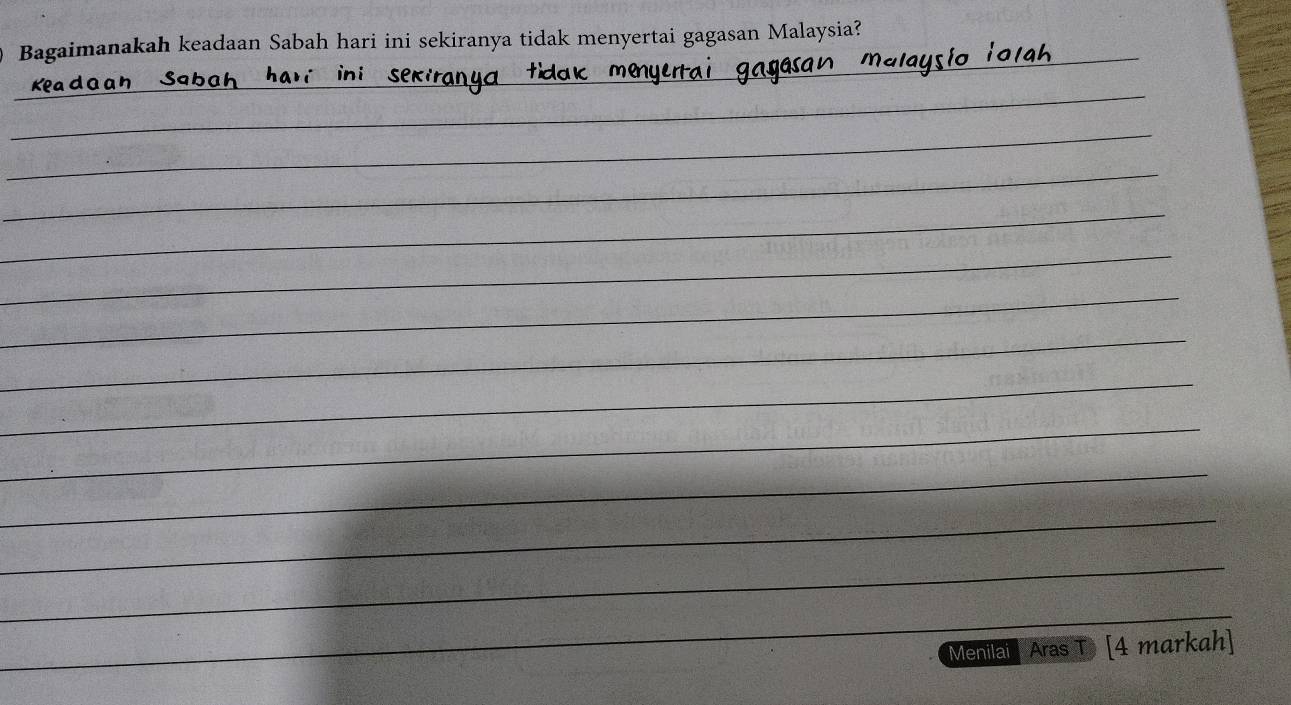 ) Bagaimanakah keadaan Sabah hari ini sekiranya tidak menyertai gagasan Malaysia?
Keadaan Sabah hari ini sekiranya tidak menyertai gagasan malaysia ialah
Menilai Aras T [4 markah]